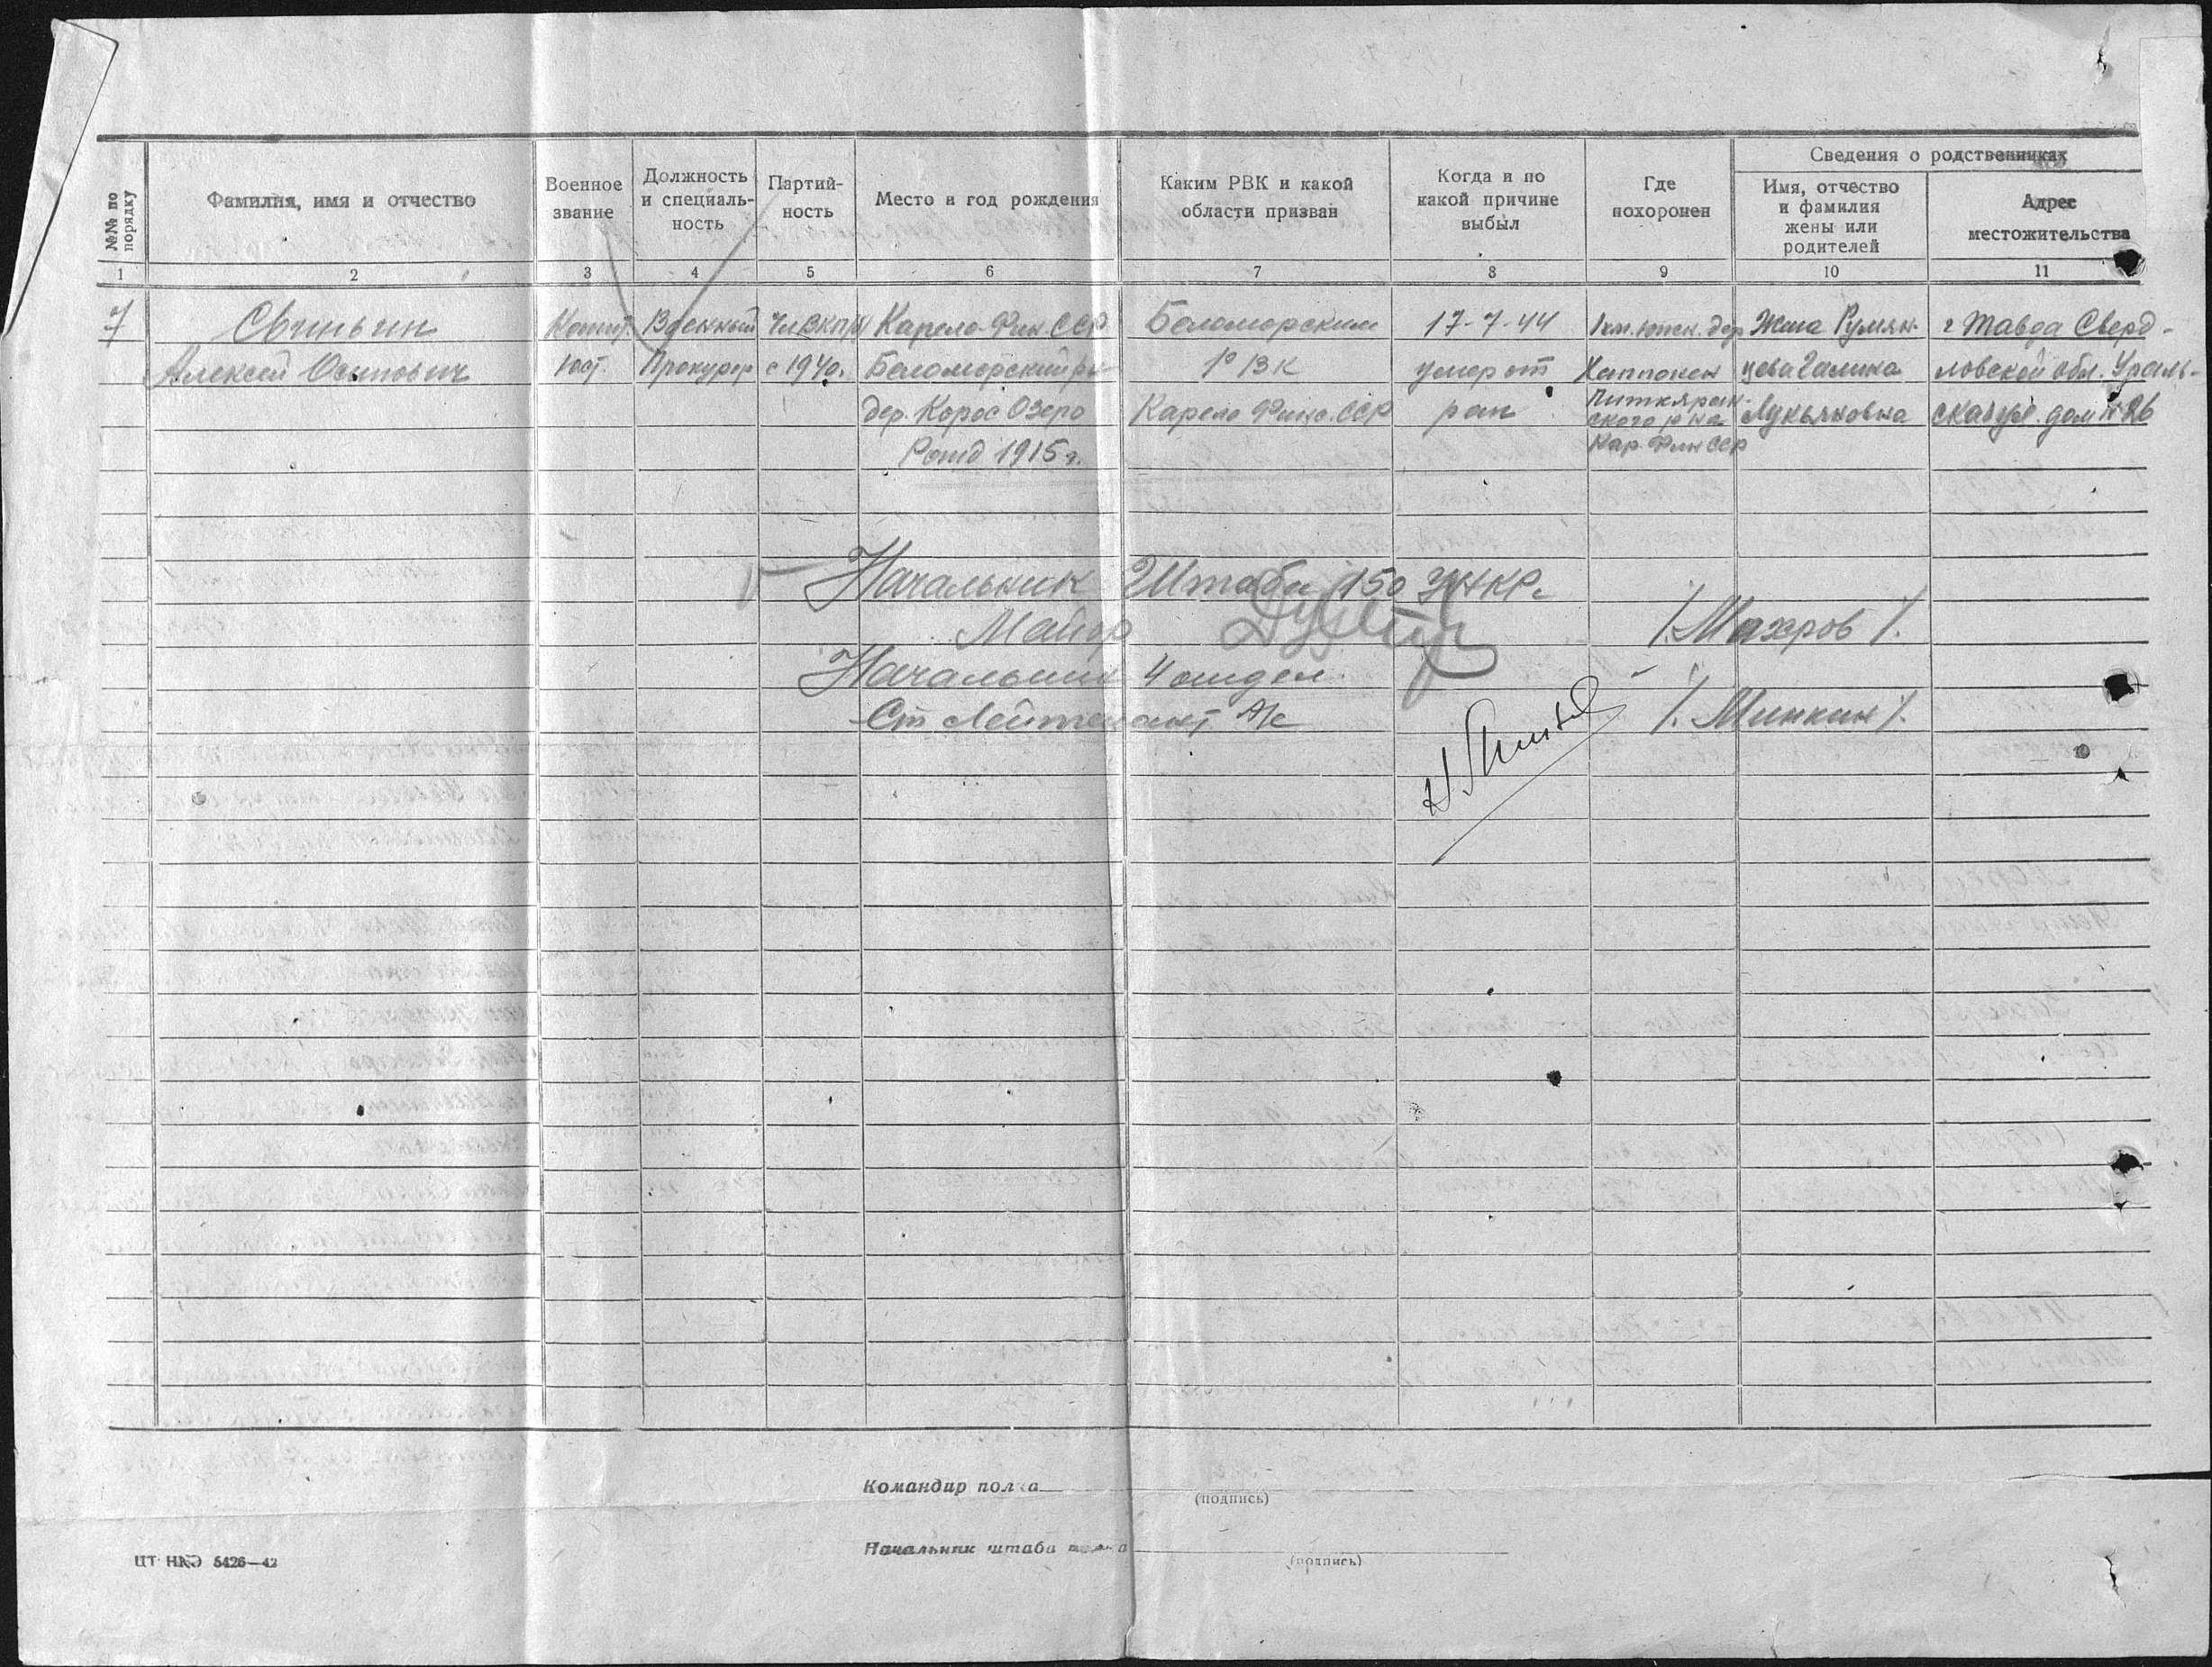 №№ по порядку
Фамилия, имя и отчество
Военное звание
Должность и специаль-ность
Партий-ность
Место и год рождения
Каким РВК и какой области призван
Когда и по какой причине выбыл
Где похоронен
Сведения о родственниках
Имя, отчество и фамилия жены или родителей
Адрес местожительства
1 2 3 4 5 6 7 8 9 10 11
7 Свиньин Капит. Военный Чл ВКП/б/ Карело-Фин. ССР Беломорским 17-7-44 1 км. южн. дер Жена Румян- г Тавда Сверд-
Алексей Осипович юст. Прокурор с 1940г. Беломорский р-н РВК умер от Хаппонен цева Галина ловской обл. Ураль-
дер. Корос Озеро Карело Финс. ССР ран Питкяран- Лукьяновна ская ул. дом № 26
ского р на
Рожд 1915 г. Кар. Фин ССР
Начальник Штаба 150 УНКР
Майор /. Махров /.
Начальник 4 отдел.
Ст Лейтенант А/с /. Минкин /.
Командир полка
(подпись)
Начальник штаба полка
(подпись)
ЦТ НКО 5426—42